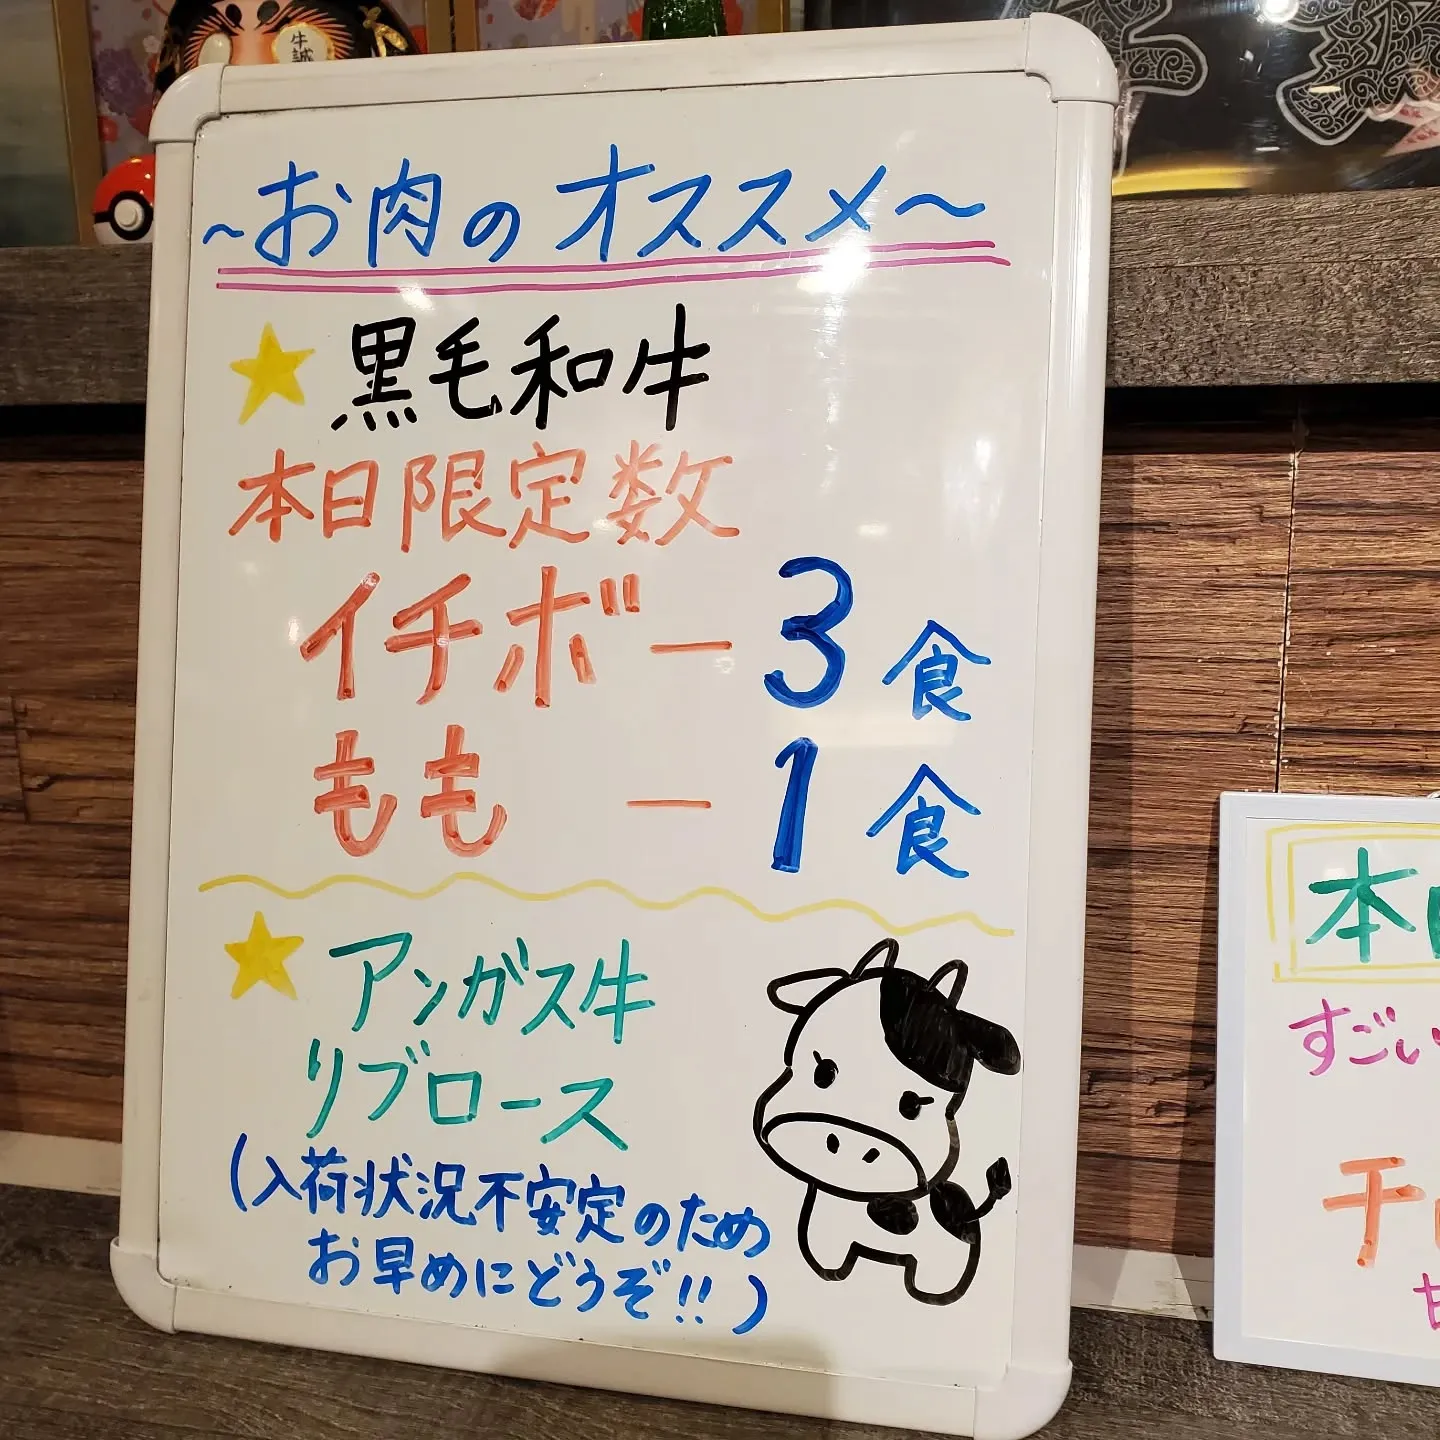 牛誠
~お肉のオススメ~
黒毛和牛
本日限定数
イチボー3食
もも ー1食
アンガス牛
リブロース
(入荷状況不安定のため
お早めにどうぞ!!)
本日
すごい